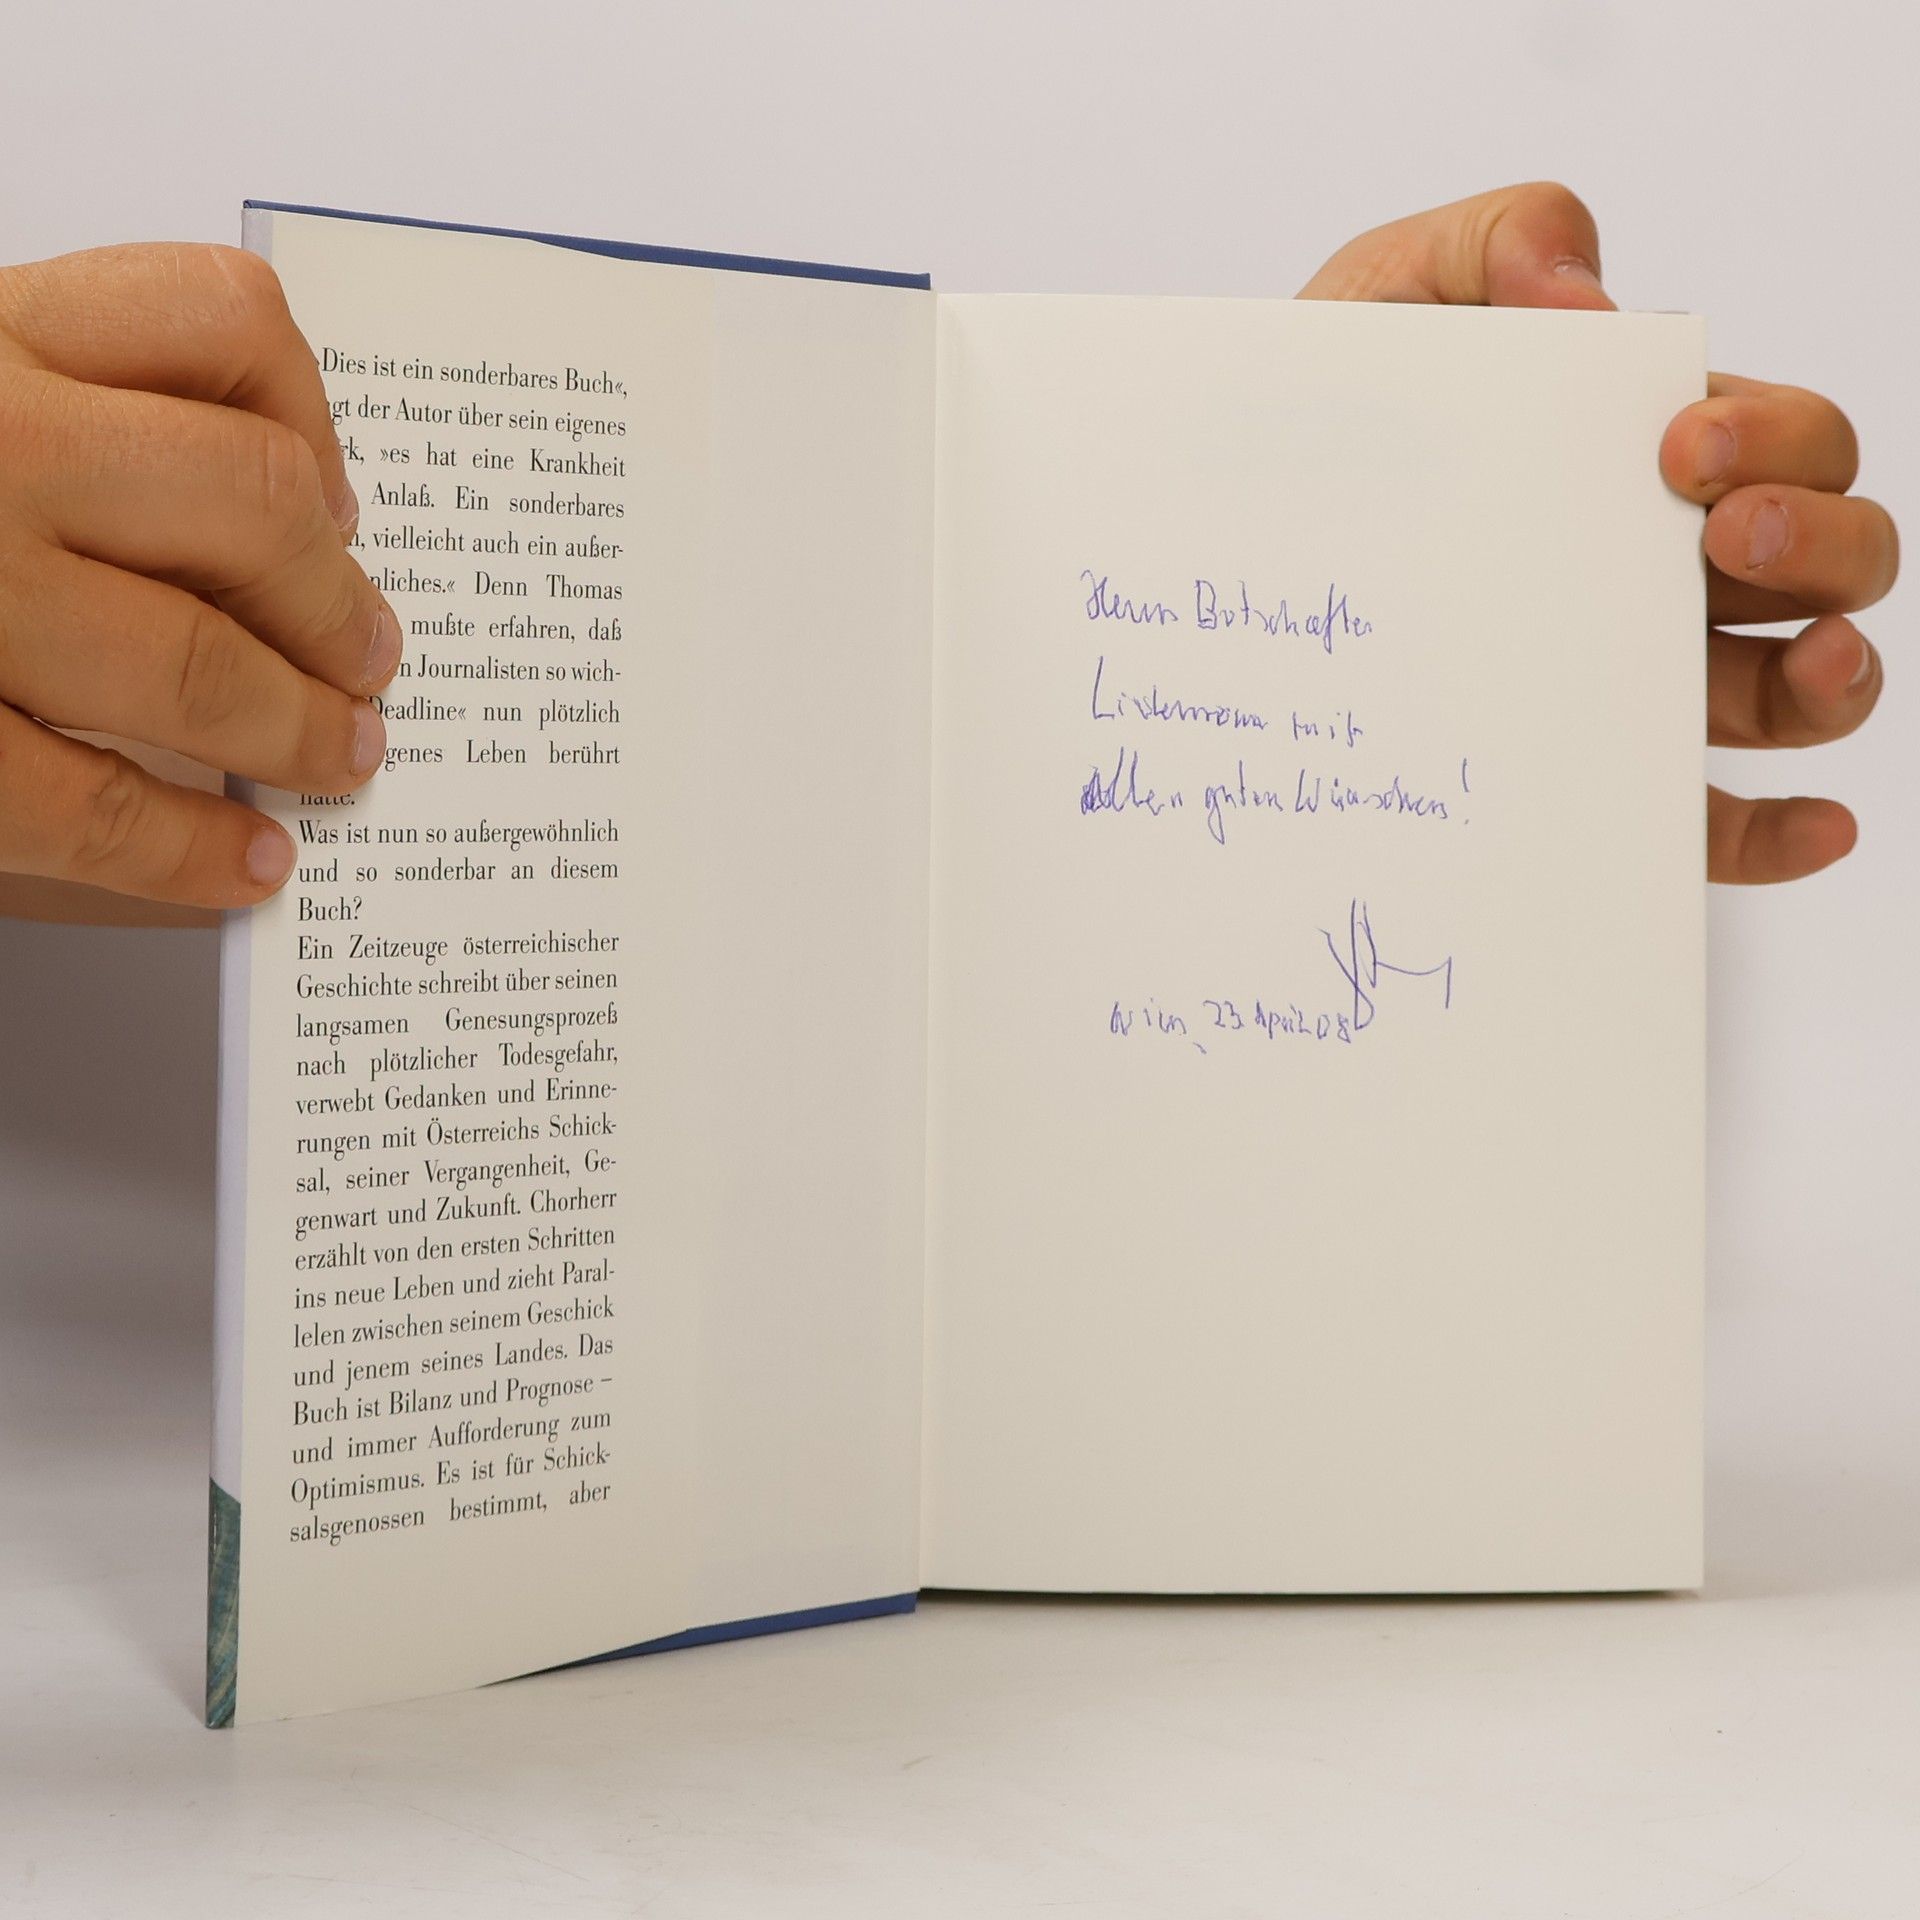 Dies ist ein sonderbares Buch«,
gt der Autor über sein eigenes
rk, »es hat eine Krankheit
Anlaß. Ein sonderbares
vielleicht auch ein außer-
nliches.« Denn Thomas
mußte erfahren, daß
n Journalisten so wich-
Deadline« nun plötzlich
genes Leben berührt
hatte.
Was ist nun so außergewöhnlich
und so sonderbar an diesem
Buch?
Ein Zeitzeuge österreichischer
Geschichte schreibt über seinen
langsamen Genesungsprozeß
nach plötzlicher Todesgefahr,
verwebt Gedanken und Erinne-
rungen mit Österreichs Schick-
sal, seiner Vergangenheit, Ge-
genwart und Zukunft. Chorherr
erzählt von den ersten Schritten
ins neue Leben und zieht Paral-
lelen zwischen seinem Geschick
und jenem seines Landes. Das
Buch ist Bilanz und Prognose –
und immer Aufforderung zum
Optimismus. Es ist für Schick-
salsgenossen bestimmt, aber
Herrn Botschafter
mit
Allen guten Wünschen!
Wien, 23. April 08